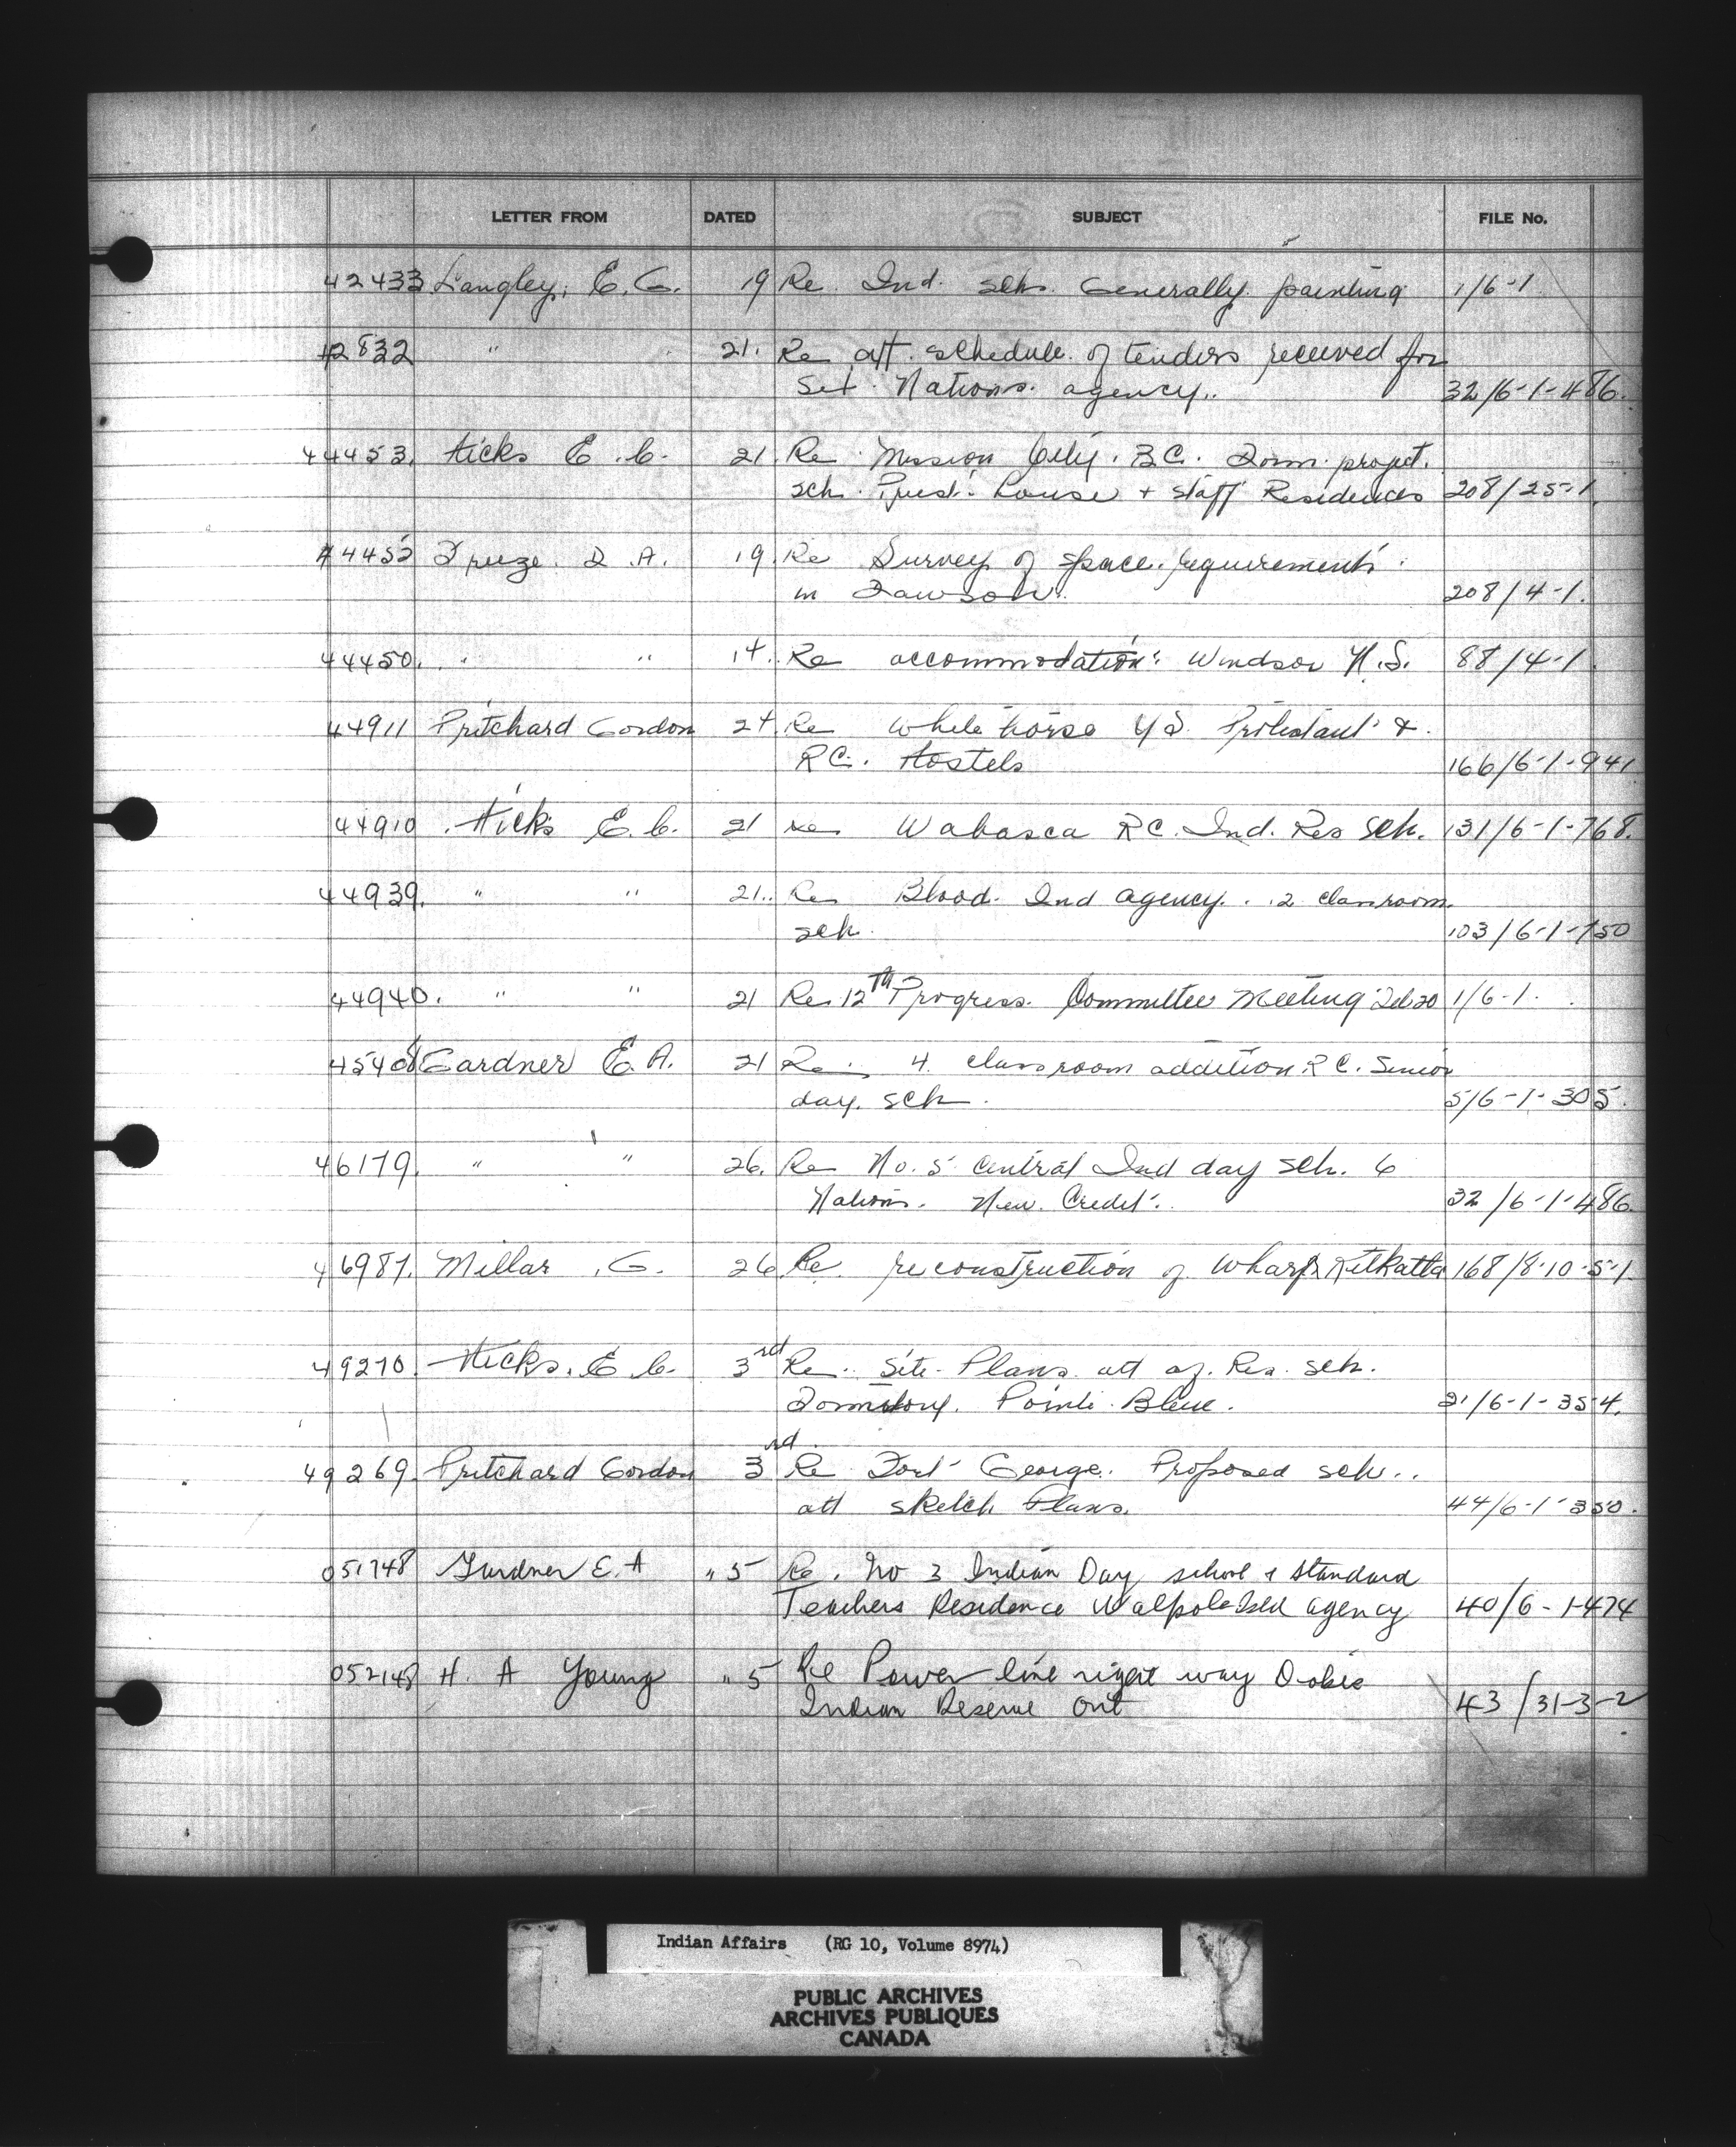 LETTER FROM DATED SUBJECT FILE No.
42433 Langley, E. G. 19 Re Ind. sch. Generally painting 1/6-1
42832 " 21. Re att. schedule of tenders received for
Six Nations agency. 32/6-1-486.
44453. Hicks E. C. 21 Re Mission City. B.C. Dorm. project.
sch. Prest. House + staff Residences 208/25-1
44452 Freeze D. A. 19. Re Survey of space requirements
in Dawson. 208/4-1.
44450. " " 14. Re accommodation: Windsor N.S. 88/4-1
44911 Pritchard Gordon 24. Re White horse Y.T. Protestant &
R.C. Hostels 166/6-1-941
44910 Hicks E. C. 21 Re Wabasca R.C. Ind. Res Sch. 131/6-1-768.
44939. " " 21. Re Blood Ind agency. 2 classroom
sch. 103/6-1-750
44940. " " 21 Re 12th Progress Committee Meeting Feb 20 1/6-1.
45408 Gardner E. A. 21 Re 4 classroom addition R.C. Senior
day. sch. 5/6-1-305.
46179. " " 26. Re No. 5 Central Ind day Sch. 6
Nations. New. Credit. 32/6-1-486.
46987. Millar, G. 26 Re reconstruction of Wharf Kitkatla 168/8-10-5-1.
49270. Hicks, E. C. 3rd Re Site Plans att of. Res. sch.
Dormitory. Pointe Bleue. 21/6-1-354.
49269. Pritchard Gordon 3rd Re Fort George. Proposed sch..
att sketch Plans. 44/6-1-350.
051748 Gardner E. A " 5 Re. No 3 Indian Day school & Standard
Teachers Residence Walpole Isld agency 40/6-1-474
052148 H. A Young " 5 Re Power line right way
Indian Reserve Ont 43/31-3-2
Indian Affairs (RG 10, Volume 8974)
PUBLIC ARCHIVES
ARCHIVES PUBLIQUES
CANADA